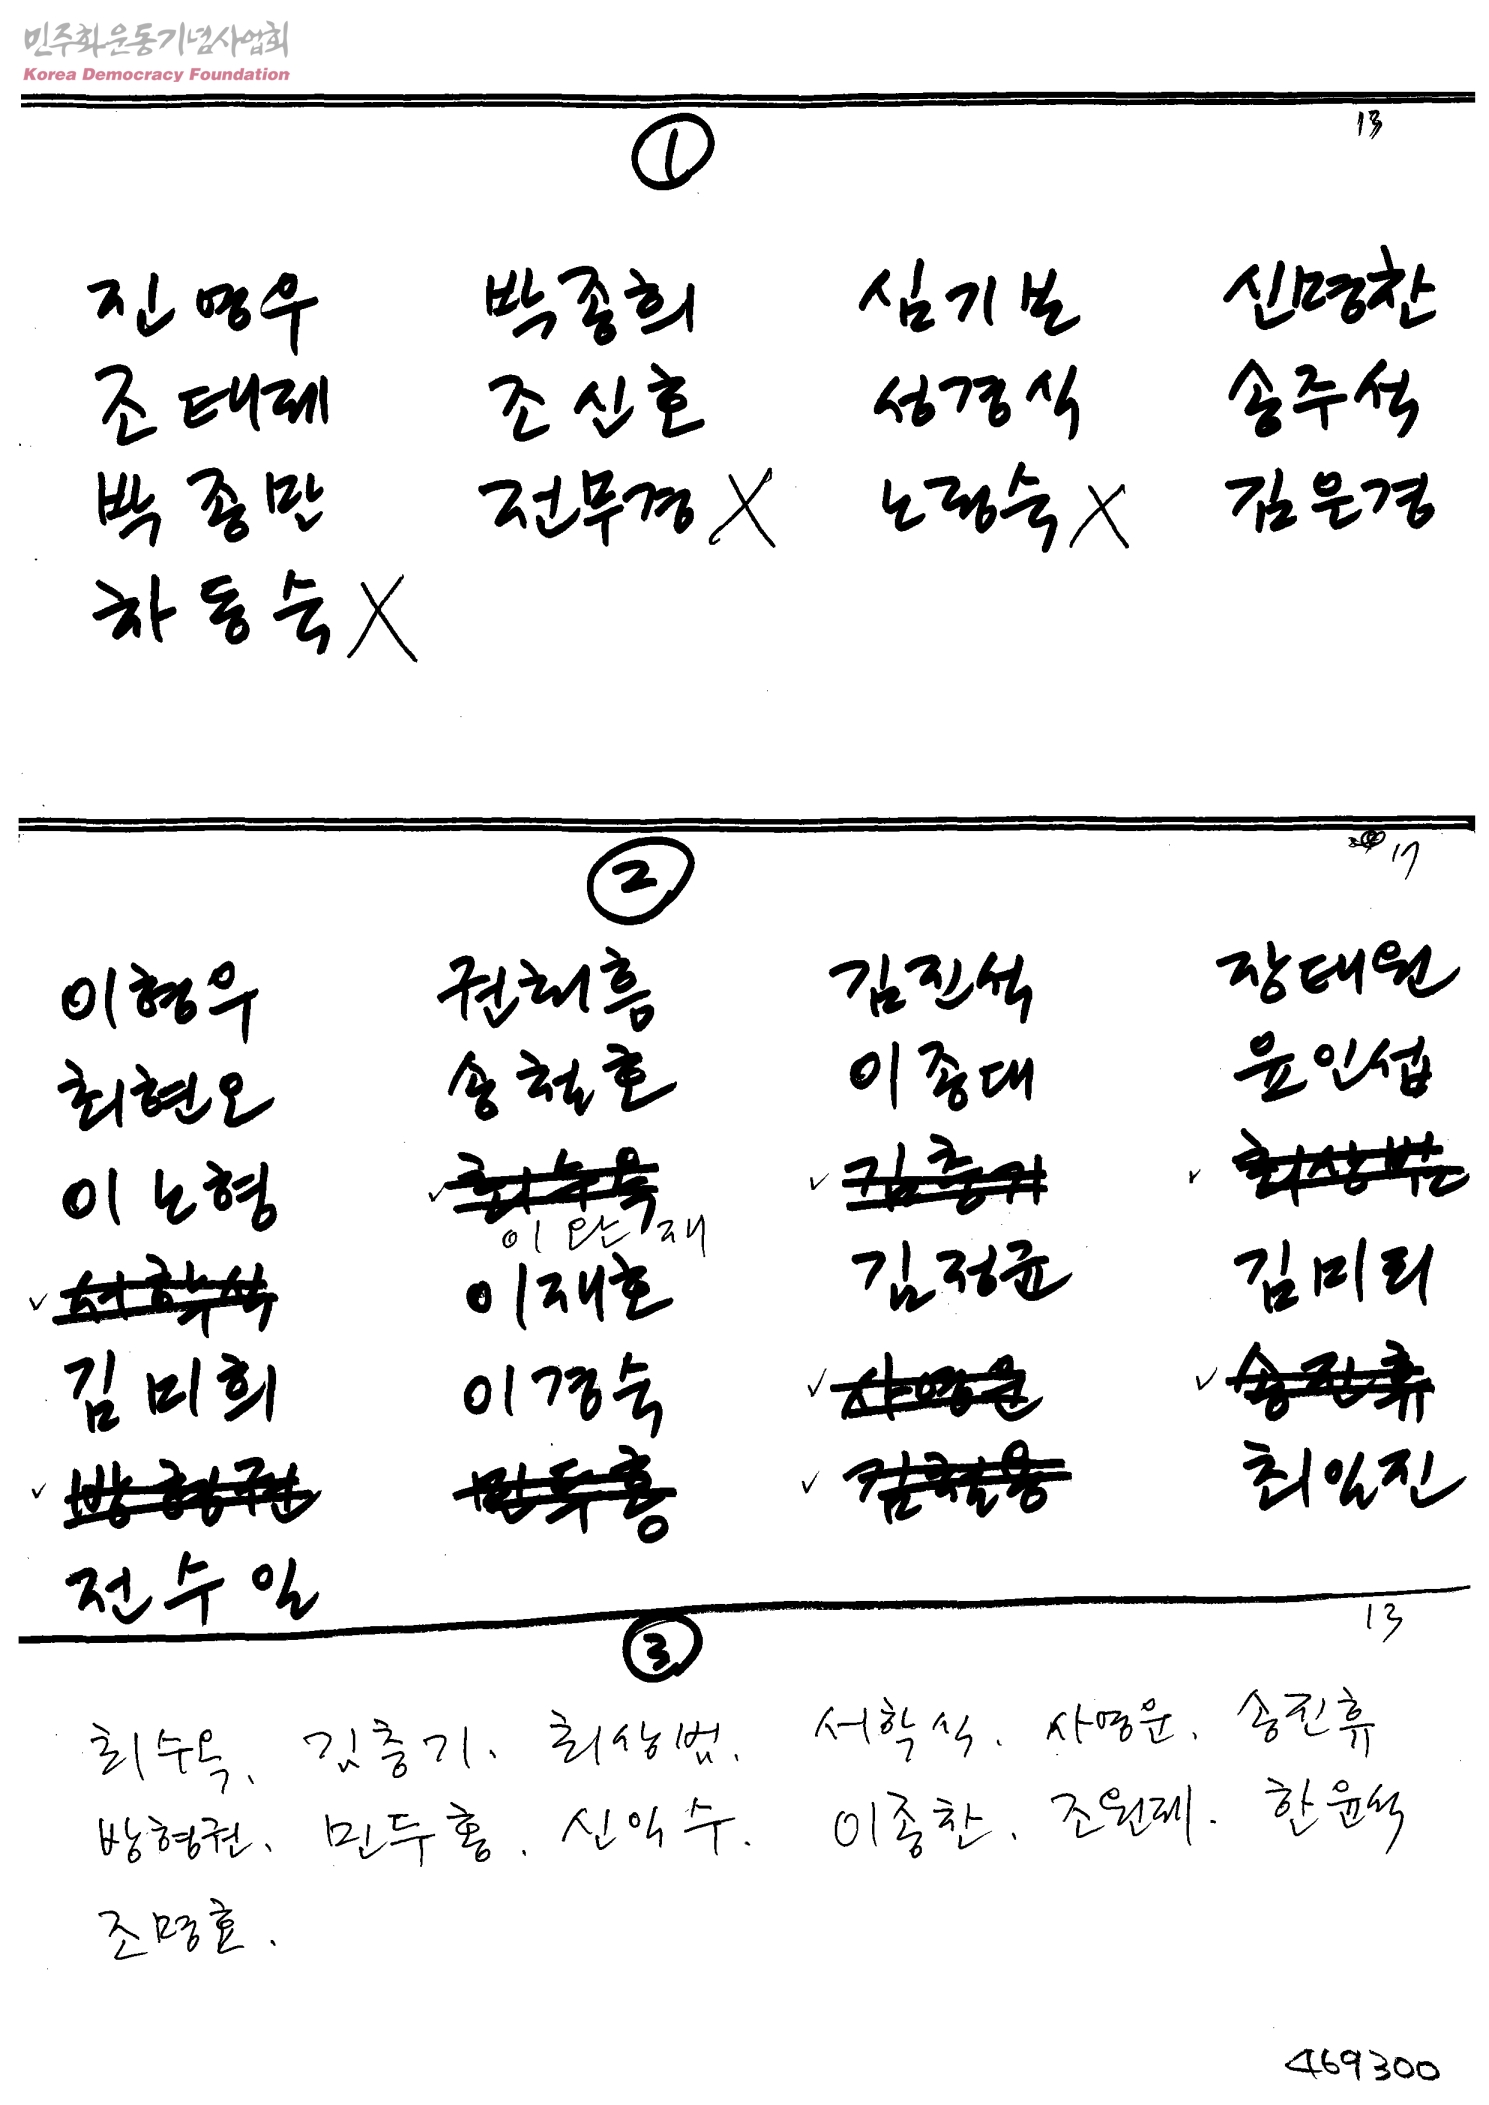 민주화운동기념사업회
Korea Democracy Foundation
13
①
진영우 박종희 심기보 신명찬
조태례 조신호 성경식 송주석
박종만 전무경 X 노령숙 X 김은경
차동숙 X
17
②
이형우 권최흠 김진석 장태원
최현오 송철호 이종대 윤인섭
이노형 ✓최수옥 ✓김충기 ✓최상범
이완재
✓서학식 이재호 김정균 김미리
김미희 이경숙 ✓사영운 ✓송진휴
✓방형권 민두홍 ✓김철용 최일진
전수일
13
③
최수옥. 김충기. 최상범. 서학식. 사영운. 송진휴
방형권. 민두홍. 신익수. 이종찬. 조원제. 한윤석
조명호.
469300